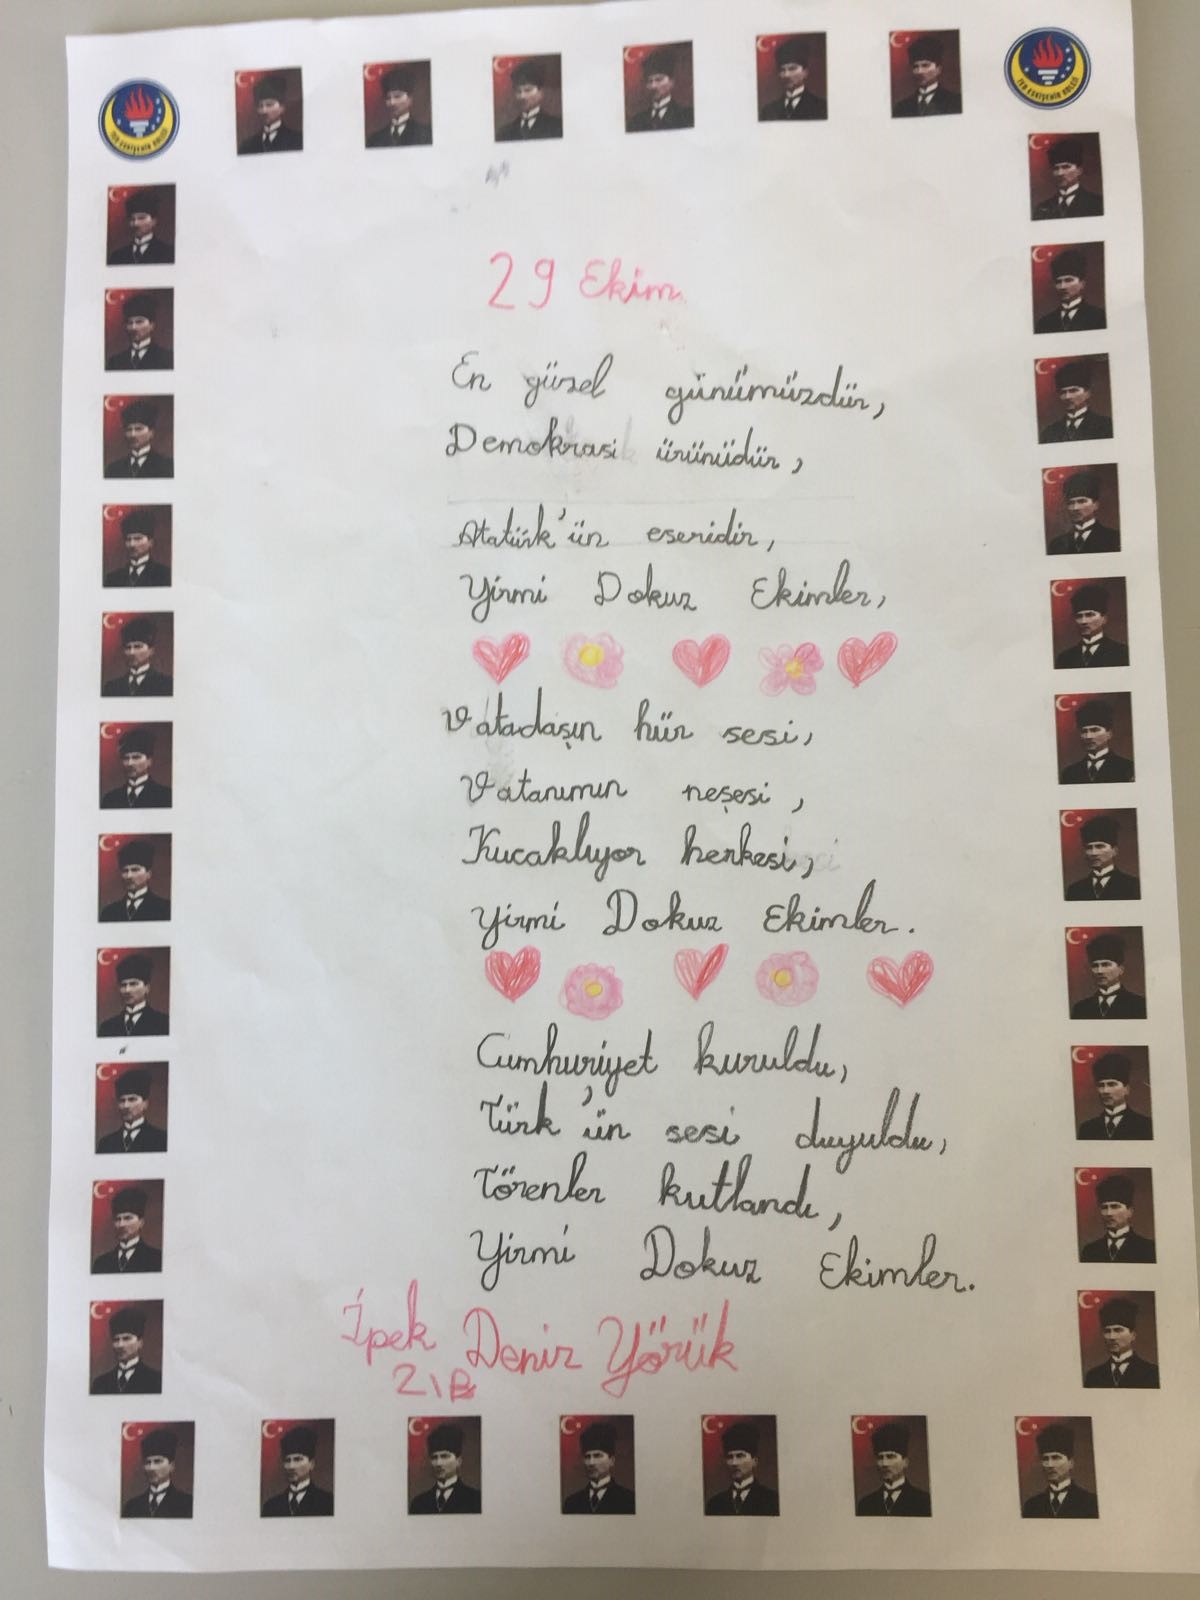 TED ESKİŞEHİR KOLEJİ
TED ESKİŞEHİR KOLEJİ
29 Ekim
En güzel günümüzdür,
Demokrasi ürünüdür,
Atatürk'ün eseridir,
Yirmi Dokuz Ekimler,
Vatadaşın hür sesi,
Vatanımın neşesi,
Kucaklıyor herkesi,
Yirmi Dokuz Ekimler.
Cumhuriyet kuruldu,
Türk'ün sesi duyuldu,
Törenler kutlandı,
Yirmi Dokuz Ekimler.
İpek Deniz Yörük
2\B